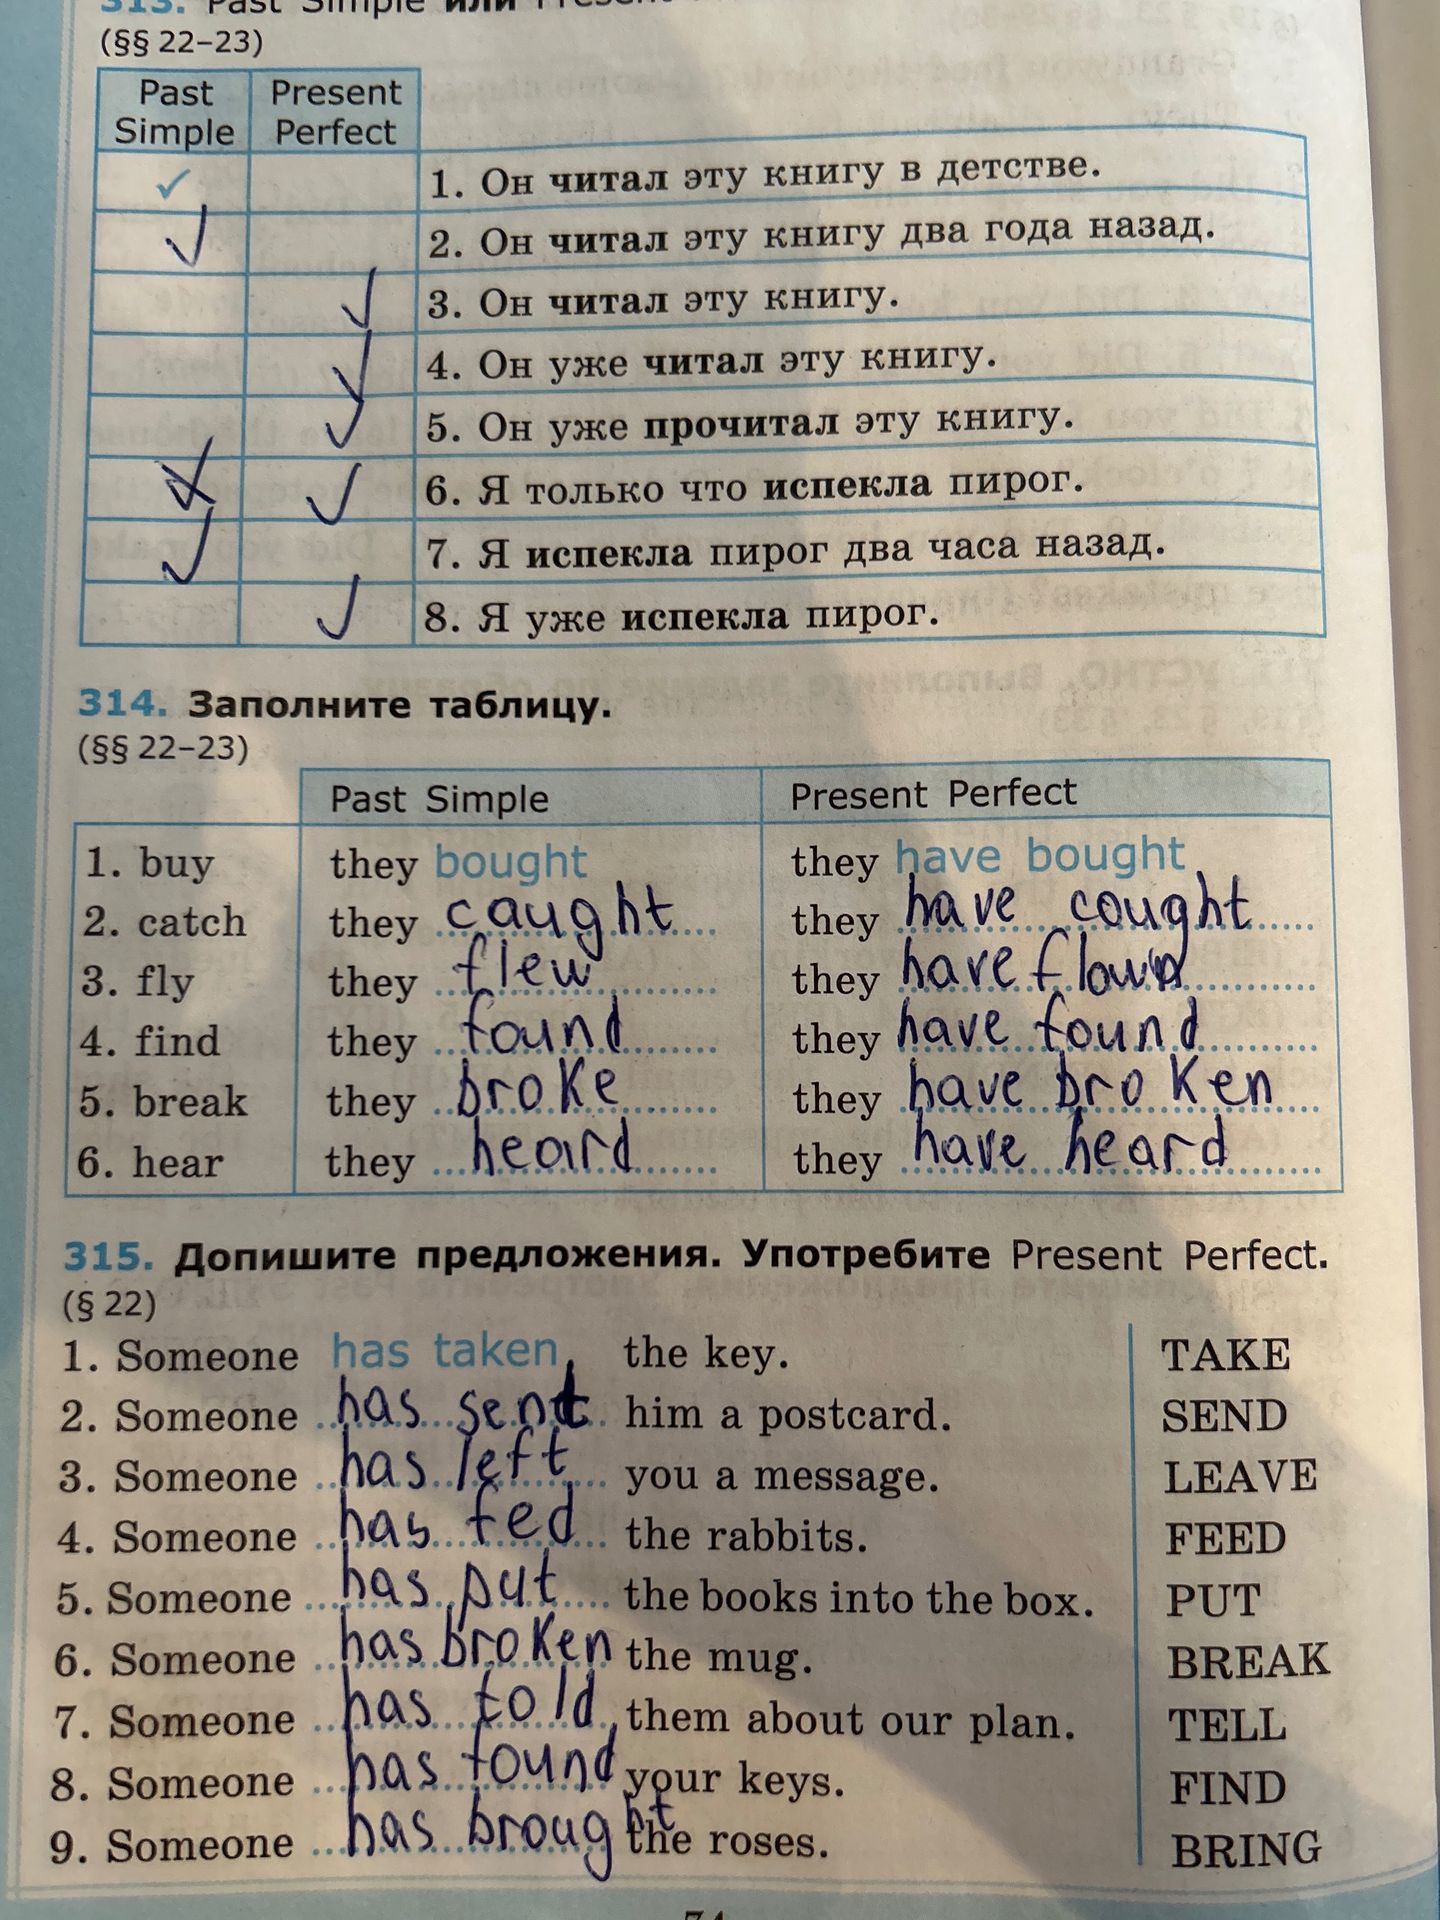 313. Past Simple или Present
(§§ 22–23)
Past Simple Present Perfect
✓ 1. Он читал эту книгу в детстве.
✓ 2. Он читал эту книгу два года назад.
✓ 3. Он читал эту книгу.
✓ 4. Он уже читал эту книгу.
✓ 5. Он уже прочитал эту книгу.
✓ 6. Я только что испекла пирог.
✓ 7. Я испекла пирог два часа назад.
✓ 8. Я уже испекла пирог.
314. Заполните таблицу.
(§§ 22–23)
Past Simple Present Perfect
1. buy they bought they have bought
2. catch they caught they have cought
3. fly they flew they have flown
4. find they found they have found
5. break they broke they have broken
6. hear they heard they have heard
315. Допишите предложения. Употребите Present Perfect.
(§ 22)
1. Someone has taken the key. TAKE
2. Someone has sent him a postcard. SEND
3. Someone has left you a message. LEAVE
4. Someone has fed the rabbits. FEED
5. Someone has put the books into the box. PUT
6. Someone has broken the mug. BREAK
7. Someone has told them about our plan. TELL
8. Someone has found your keys. FIND
9. Someone has brought the roses. BRING